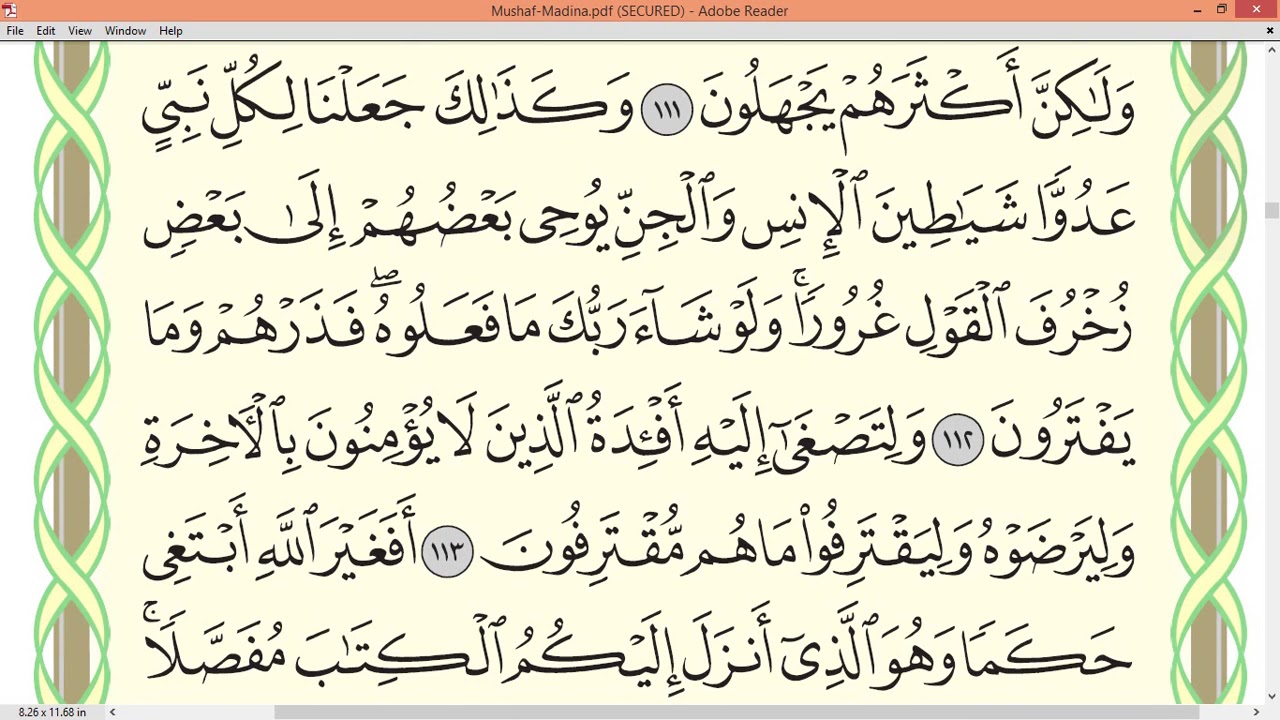 Mushaf-Madina.pdf (SECURED) - Adobe Reader
File Edit View Window Help
وَلَٰكِنَّ أَكْثَرَهُمْ يَجْهَلُونَ ١١١ وَكَذَٰلِكَ جَعَلْنَا لِكُلِّ نَبِيٍّ
عَدُوًّا شَيَٰطِينَ ٱلْإِنسِ وَٱلْجِنِّ يُوحِى بَعْضُهُمْ إِلَىٰ بَعْضٍ
زُخْرُفَ ٱلْقَوْلِ غُرُورًا ۚ وَلَوْ شَآءَ رَبُّكَ مَا فَعَلُوهُ ۖ فَذَرْهُمْ وَمَا
يَفْتَرُونَ ١١٢ وَلِتَصْغَىٰٓ إِلَيْهِ أَفْـِٔدَةُ ٱلَّذِينَ لَا يُؤْمِنُونَ بِٱلْـَٔاخِرَةِ
وَلِيَرْضَوْهُ وَلِيَقْتَرِفُوا۟ مَا هُم مُّقْتَرِفُونَ ١١٣ أَفَغَيْرَ ٱللَّهِ أَبْتَغِى
حَكَمًا وَهُوَ ٱلَّذِىٓ أَنزَلَ إِلَيْكُمُ ٱلْكِتَٰبَ مُفَصَّلًا ۚ
8.26 x 11.68 in